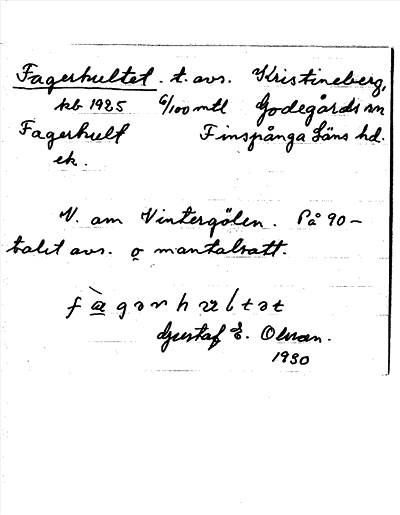 Fagerhultet. t. avs. Kristineberg,
kb 1925 6/100 mtl Godegårds sn
Fagerhult Finspånga Läns hd.
ek.
V. om Vintergölen. På 90-
talet avs. o mantalsatt.
Gustaf E. Olsson.
1930